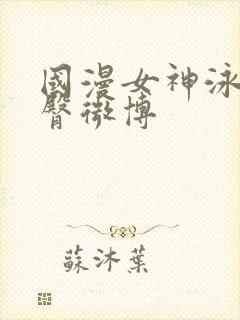 國漫女神泳
臀微博
蘇沐葉